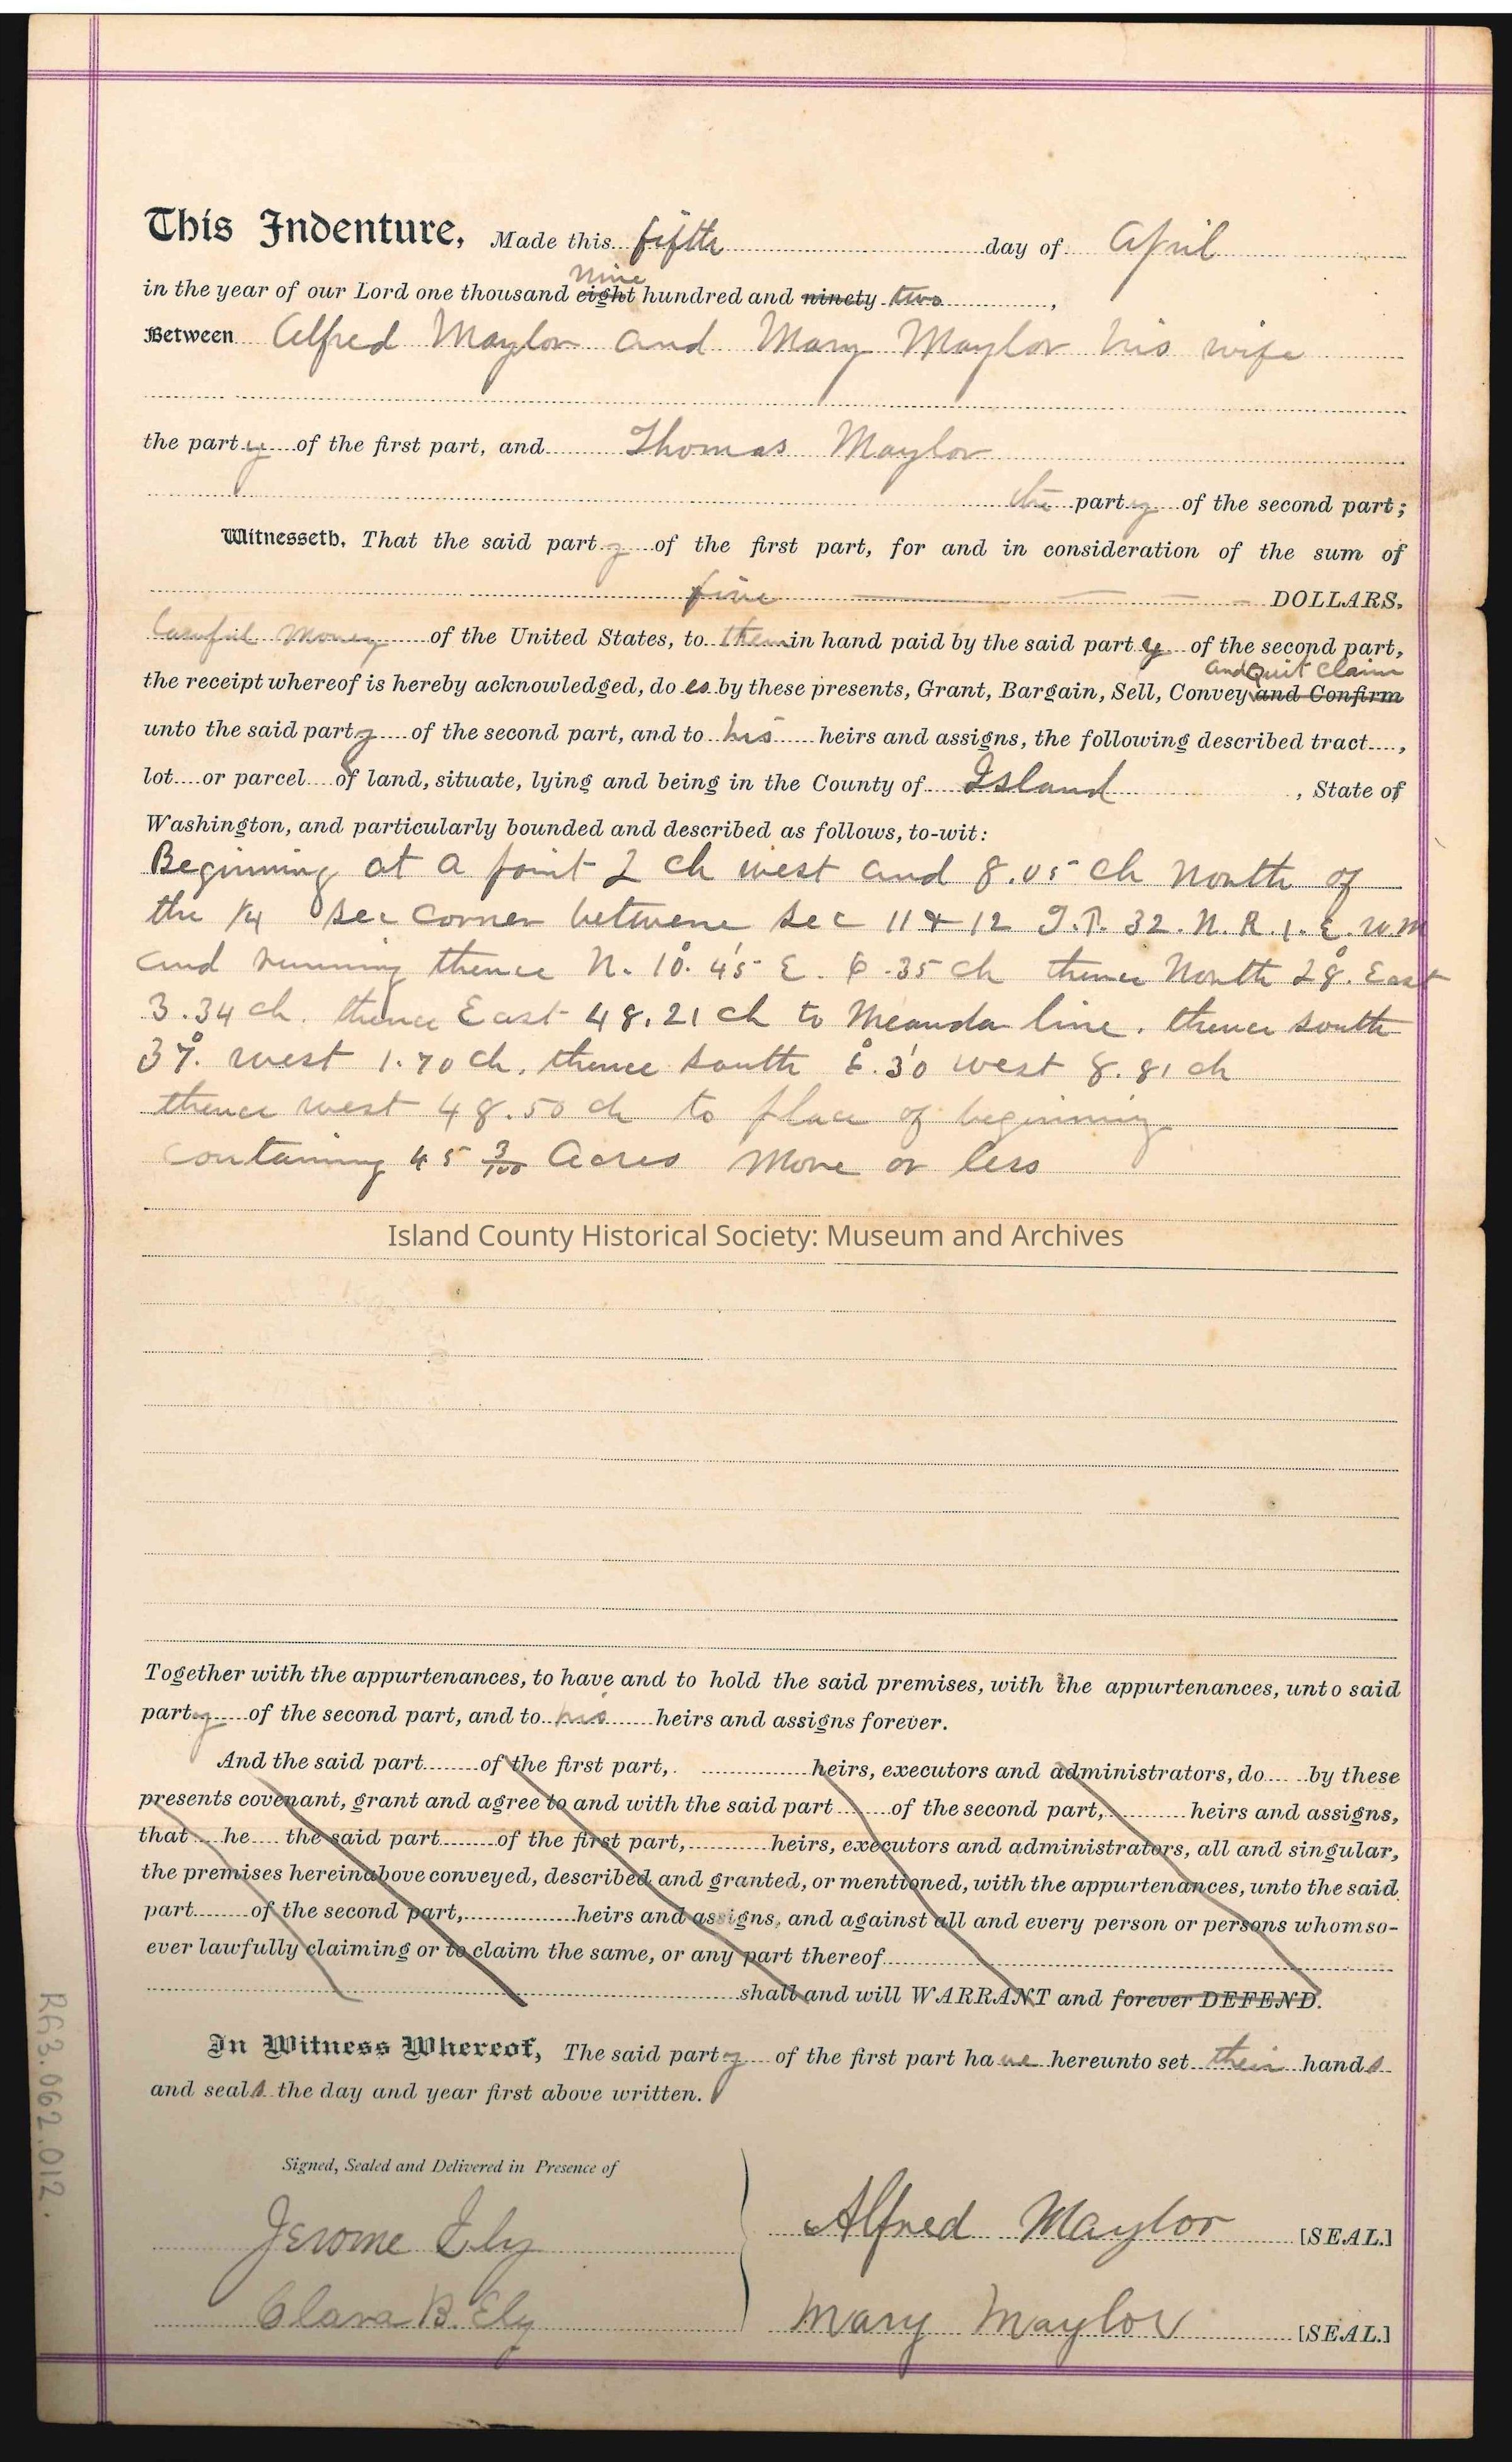 This Indenture, Made this fifth day of April
in the year of our Lord one thousand eight nine hundred and ninety two,
Between Alfred Maylor and Mary Maylor his wife
the party of the first part, and Thomas Maylor
the party of the second part;
Witnesseth, That the said party of the first part, for and in consideration of the sum of
five DOLLARS,
Lawful Money of the United States, to them in hand paid by the said party of the second part,
the receipt whereof is hereby acknowledged, do es by these presents, Grant, Bargain, Sell, Convey and Quit Claim and Confirm
unto the said party of the second part, and to his heirs and assigns, the following described tract,
lot or parcel of land, situate, lying and being in the County of Island, State of
Washington, and particularly bounded and described as follows, to-wit:
Beginning at a point 2 ch west and 8.05 ch North of
the 1/4 Sec Corner betwene Sec 11 & 12 T.P. 32. N. R. 1. E. W.M
and running thence N. 10°. 45' E. 6.35 ch thence North 28°. East
3.34 ch. thence East 48.21 ch to Meanda line. thence south
37°. west 1.70 ch. thence south 6°.30' west 8.81 ch
thence west 48.50 ch to place of beginning
containing 45 3/100 Acres More or less
Island County Historical Society: Museum and Archives
Together with the appurtenances, to have and to hold the said premises, with the appurtenances, unto said
party of the second part, and to his heirs and assigns forever.
And the said part of the first part, heirs, executors and administrators, do by these
presents covenant, grant and agree to and with the said part of the second part, heirs and assigns,
that he the said part of the first part, heirs, executors and administrators, all and singular,
the premises hereinabove conveyed, described and granted, or mentioned, with the appurtenances, unto the said
part of the second part, heirs and assigns, and against all and every person or persons whomso-
ever lawfully claiming or to claim the same, or any part thereof
shall and will WARRANT and forever DEFEND.
In Witness Whereof, The said party of the first part have hereunto set their hands
and seals the day and year first above written.
Signed, Sealed and Delivered in Presence of
Jerome Ely
Alfred Maylor [SEAL.]
Clara B. Ely
Mary Maylor [SEAL.]
RG3.062.012.